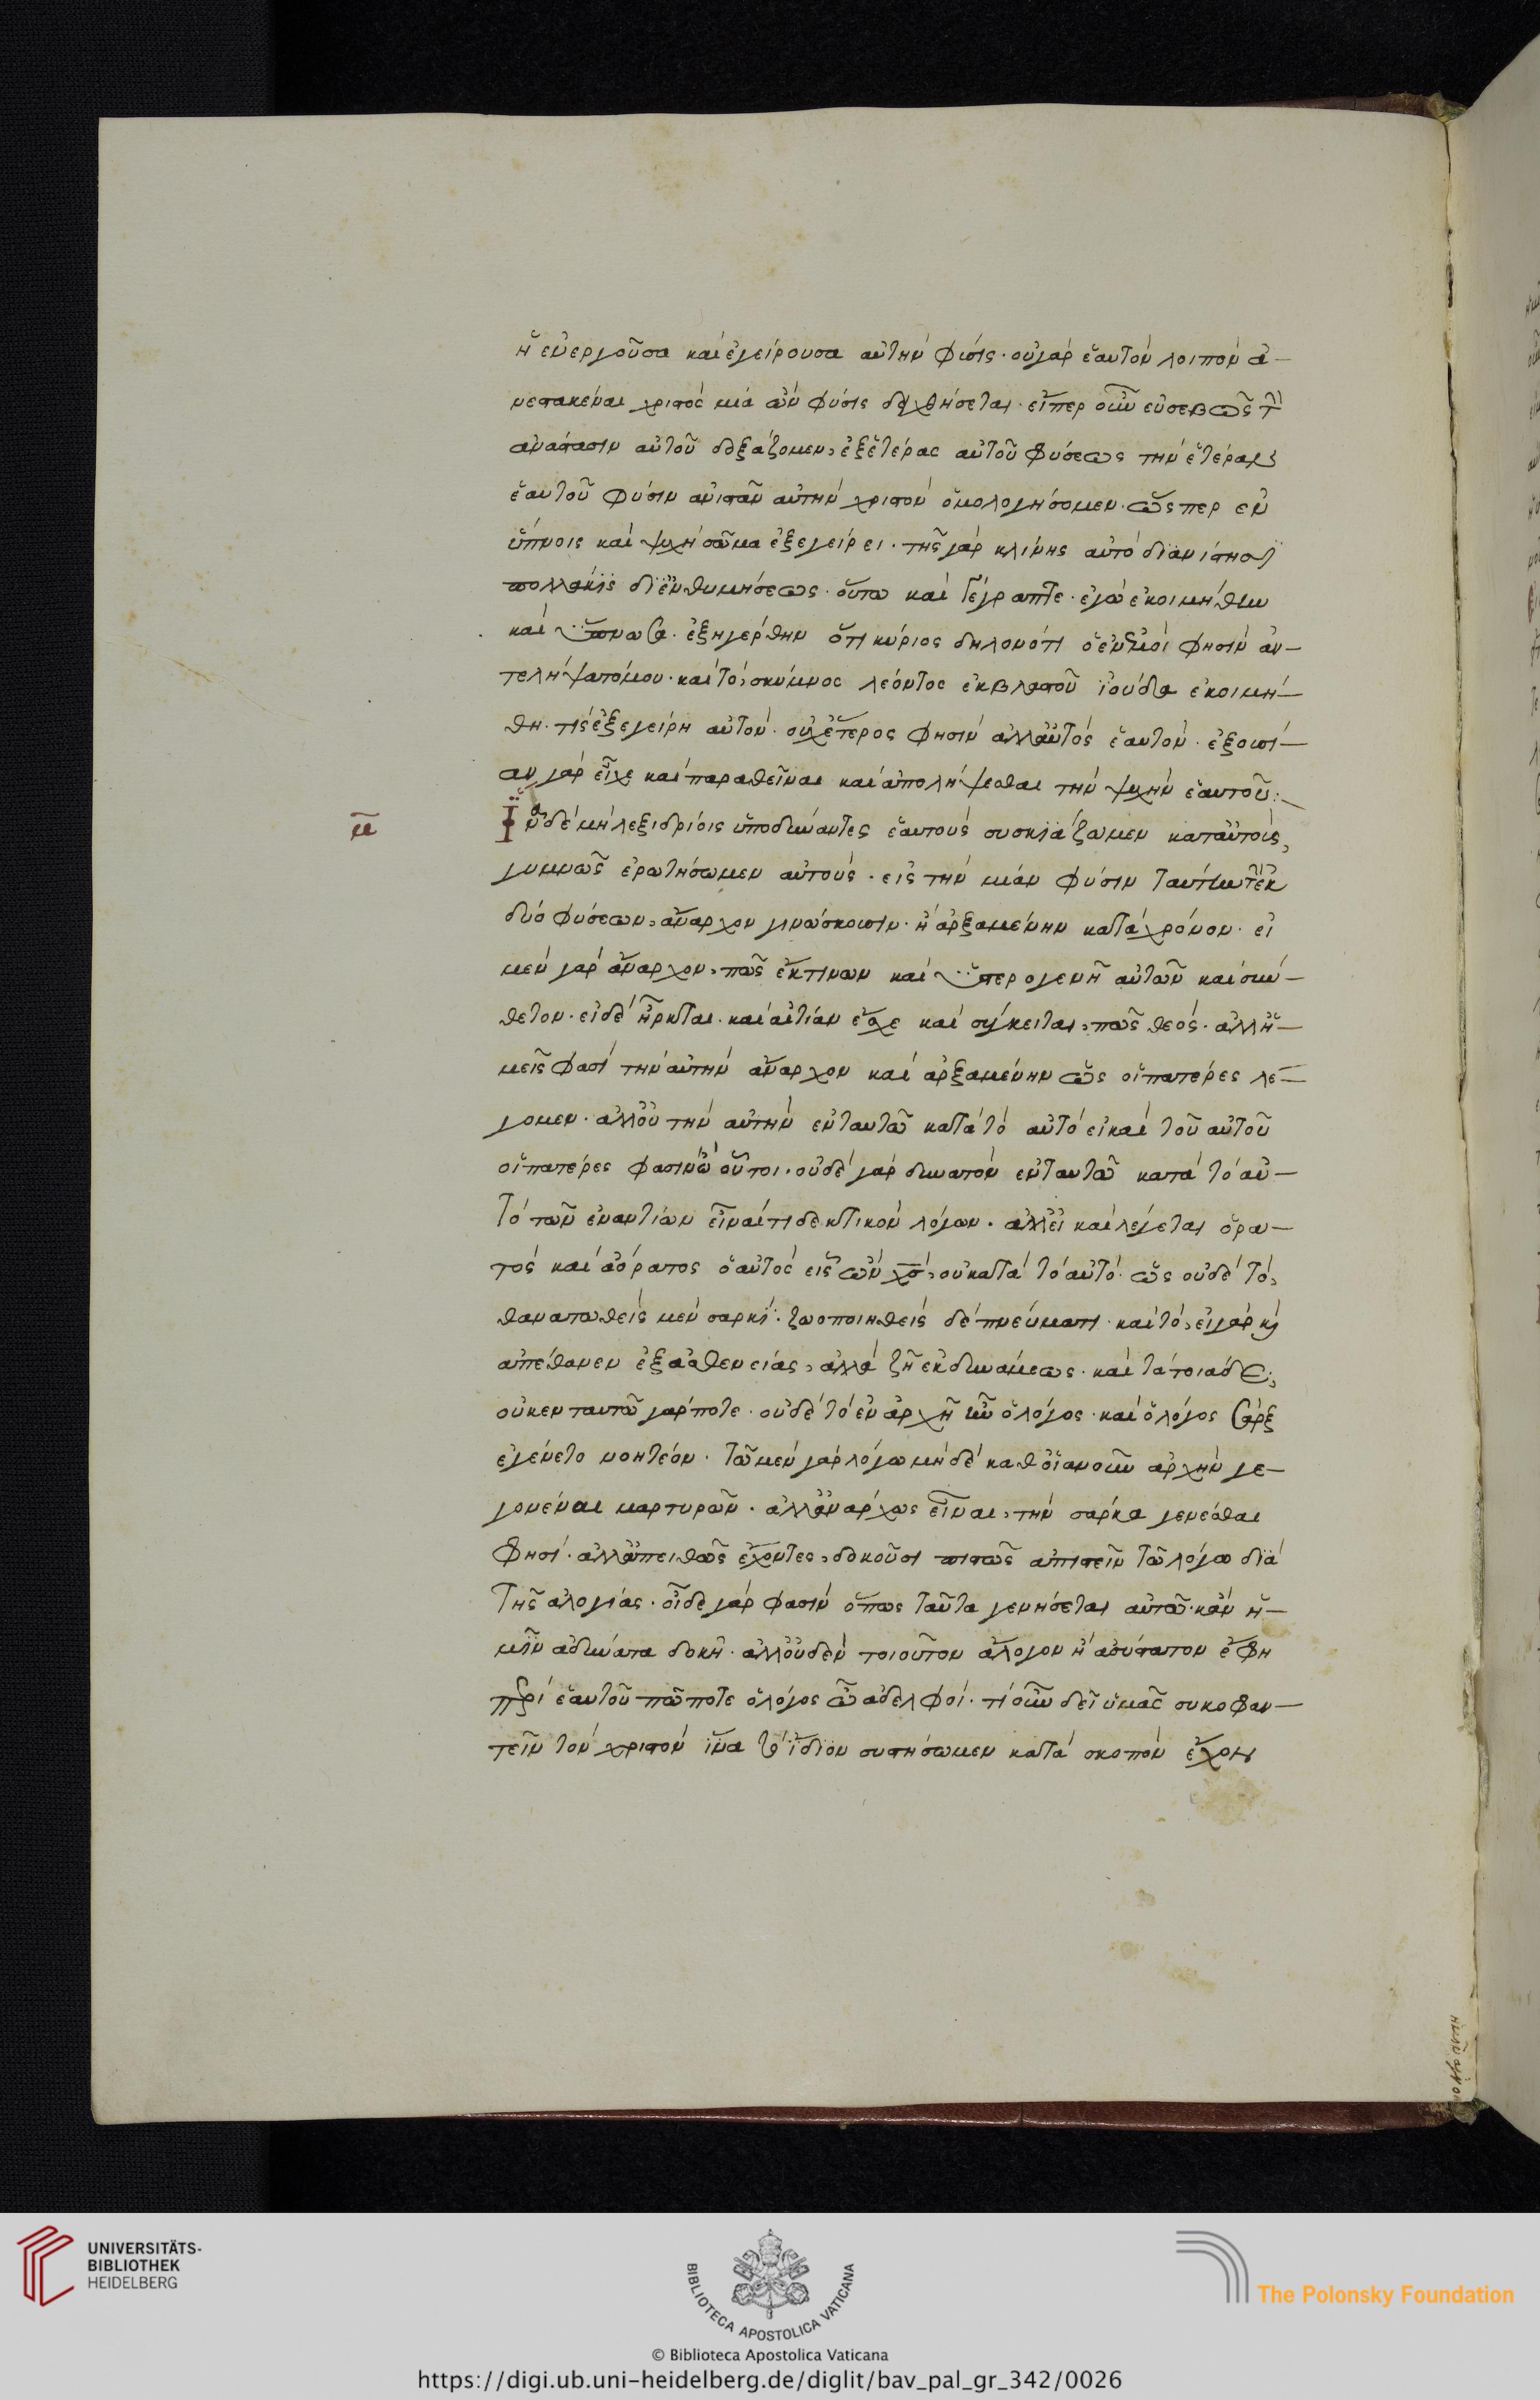 ἡ ἐνεργοῦσα καὶ ἐγείρουσα αὐτὴν φύσις· οὐ γὰρ ἑαυτὸν λοιπὸν ἀ-
νεστακέναι χριστὸς μία ὢν φύσις δειχθήσεται· εἴπερ οὖν εὐσεβῶς τὴν
ἀνάστασιν αὐτοῦ δοξάζομεν, ἐξ ἑτέρας αὐτοῦ φύσεως τὴν ἑτέραν
ἑαυτοῦ φύσιν ἀνιστᾶν αὐτὴν χριστὸν ὁμολογήσομεν· ὥσπερ ἐν
ὕπνοις καὶ ψυχὴ σῶμα ἐξεγείρει· τῆς γὰρ κλίνης αὐτὸ διανίστησι
πολλάκις δι ἐνθυμήσεως· οὕτω καὶ γέγραπτε· ἐγὼ ἐκοιμήθην
καὶ ὕπνωσα· ἐξηγέρθην ὅτι κύριος δηλονότι ὁ ἐν ἐμοὶ φησὶν ἀν-
τελήψατό μου· καὶ τὸ, σκύμνος λέοντος ἐκ βλαστοῦ ἰούδα ἐκοιμή-
θη· τίς ἐξεγείρη αὐτόν· οὐχ ἕτερος φησὶν ἀλλ αὐτὸς ἑαυτόν· ἐξουσί-
αν γὰρ εἶχε καὶ παραθεῖναι καὶ ἀπολήψεσθαι τὴν ψυχὴν ἑαυτοῦ:
μ Ἵνα δὲ μὴ λεξιδρίοις ὑποδύναντες ἑαυτοὺς συσκιάζωμεν κατ αὐτοὺς,
γυμνῶς ἐρωτήσωμεν αὐτούς· εἰς τὴν μίαν φύσιν ταύτην τὴν ἐκ
δύο φύσεων, ἄναρχον γινώσκουσιν· ἢ ἀρξαμένην κατὰ χρόνον· εἰ
μὲν γὰρ ἄναρχον, πῶς ἔκ τινων καὶ ὑστερογενῆ αὐτῶν καὶ σύν-
θετον· εἰ δὲ ἦρκται· καὶ αἰτίαν ἔσχε καὶ σύγκειται, πῶς θεός· ἀλλ ἡ-
μεῖς φασὶ τὴν αὐτὴν ἄναρχον καὶ ἀρξαμένην ὡς οἱ πατέρες λέ-
γομεν· ἀλλ οὐ τὴν αὐτὴν ἐν ταυτῶ κατὰ τὸ αὐτὸ εἰ καὶ τοῦ αὐτοῦ
οἱ πατέρες φασὶν ὦ οὗτοι· οὐδὲ γὰρ δυνατὸν ἐν ταυτῶ κατὰ τὸ αὐ-
τὸ τῶν ἐναντίων εἶναί τι δεκτικὸν λόγων· ἀλλ εἰ καὶ λέγεται ὁρα-
τὸς καὶ ἀόρατος ὁ αὐτὸς εἷς ὢν χς, οὐ κατὰ τὸ αὐτό· ὡς οὐδὲ τὸ,
θανατωθεὶς μὲν σαρκὶ· ζωοποιηθεὶς δὲ πνεύματι· καὶ τὸ, εἰ γὰρ καὶ
ἀπέθανεν ἐξ ἀσθενείας, ἀλλὰ ζῆ ἐκ δυνάμεως· καὶ τὰ τοιάδε,
οὐκ ἐν ταυτῶ γάρ ποτε· οὐδὲ τὸ ἐν ἀρχῆ ἦν ὁ λόγος· καὶ ὁ λόγος σὰρξ
ἐγένετο νοητέον· τῶ μὲν γὰρ λόγω μηδὲ καθ οἵαν οὖν ἀρχὴν γε-
γονέναι μαρτυρῶν· ἀλλ ἀνάρχως εἶναι, τὴν σάρκα γενέσθαι
φησί· ἀλλ ἀπειθῶς ἔχοντες, δοκοῦσι πιστῶς ἀπιστεῖν τῶ λόγω διὰ
τῆς ἀλογίας· οἶδε γὰρ φασὶν ὅπως ταῦτα γενήσεται αὐτῶ· κἂν ἡ-
μῖν ἀδύνατα δοκῆ· ἀλλ οὐδὲν τοιοῦτον ἄλογον ἢ ἀσύστατον ἔφη
περὶ ἑαυτοῦ πώποτε ὁ λόγος ὦ ἀδελφοί· τί οὖν δεῖ ὑμᾶς συκοφαν-
τεῖν τὸν χριστὸν ἵνα τὸ ἴδιον συστήσωμεν κατὰ σκοπὸν ἔχον
UNIVERSITÄTS-
BIBLIOTHEK
HEIDELBERG
BIBLIOTECA APOSTOLICA VATICANA
The Polonsky Foundation
© Biblioteca Apostolica Vaticana
https://digi.ub.uni-heidelberg.de/diglit/bav_pal_gr_342/0026